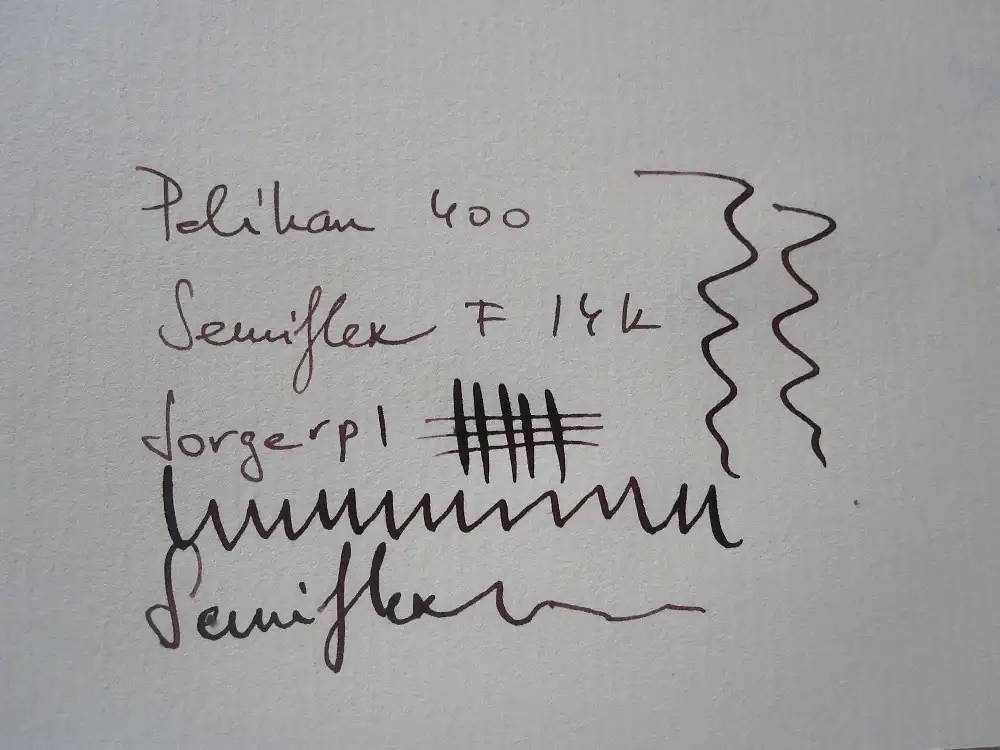 Pelikan 400
Semiflex F 14k
Sorgerpl
Semiflex